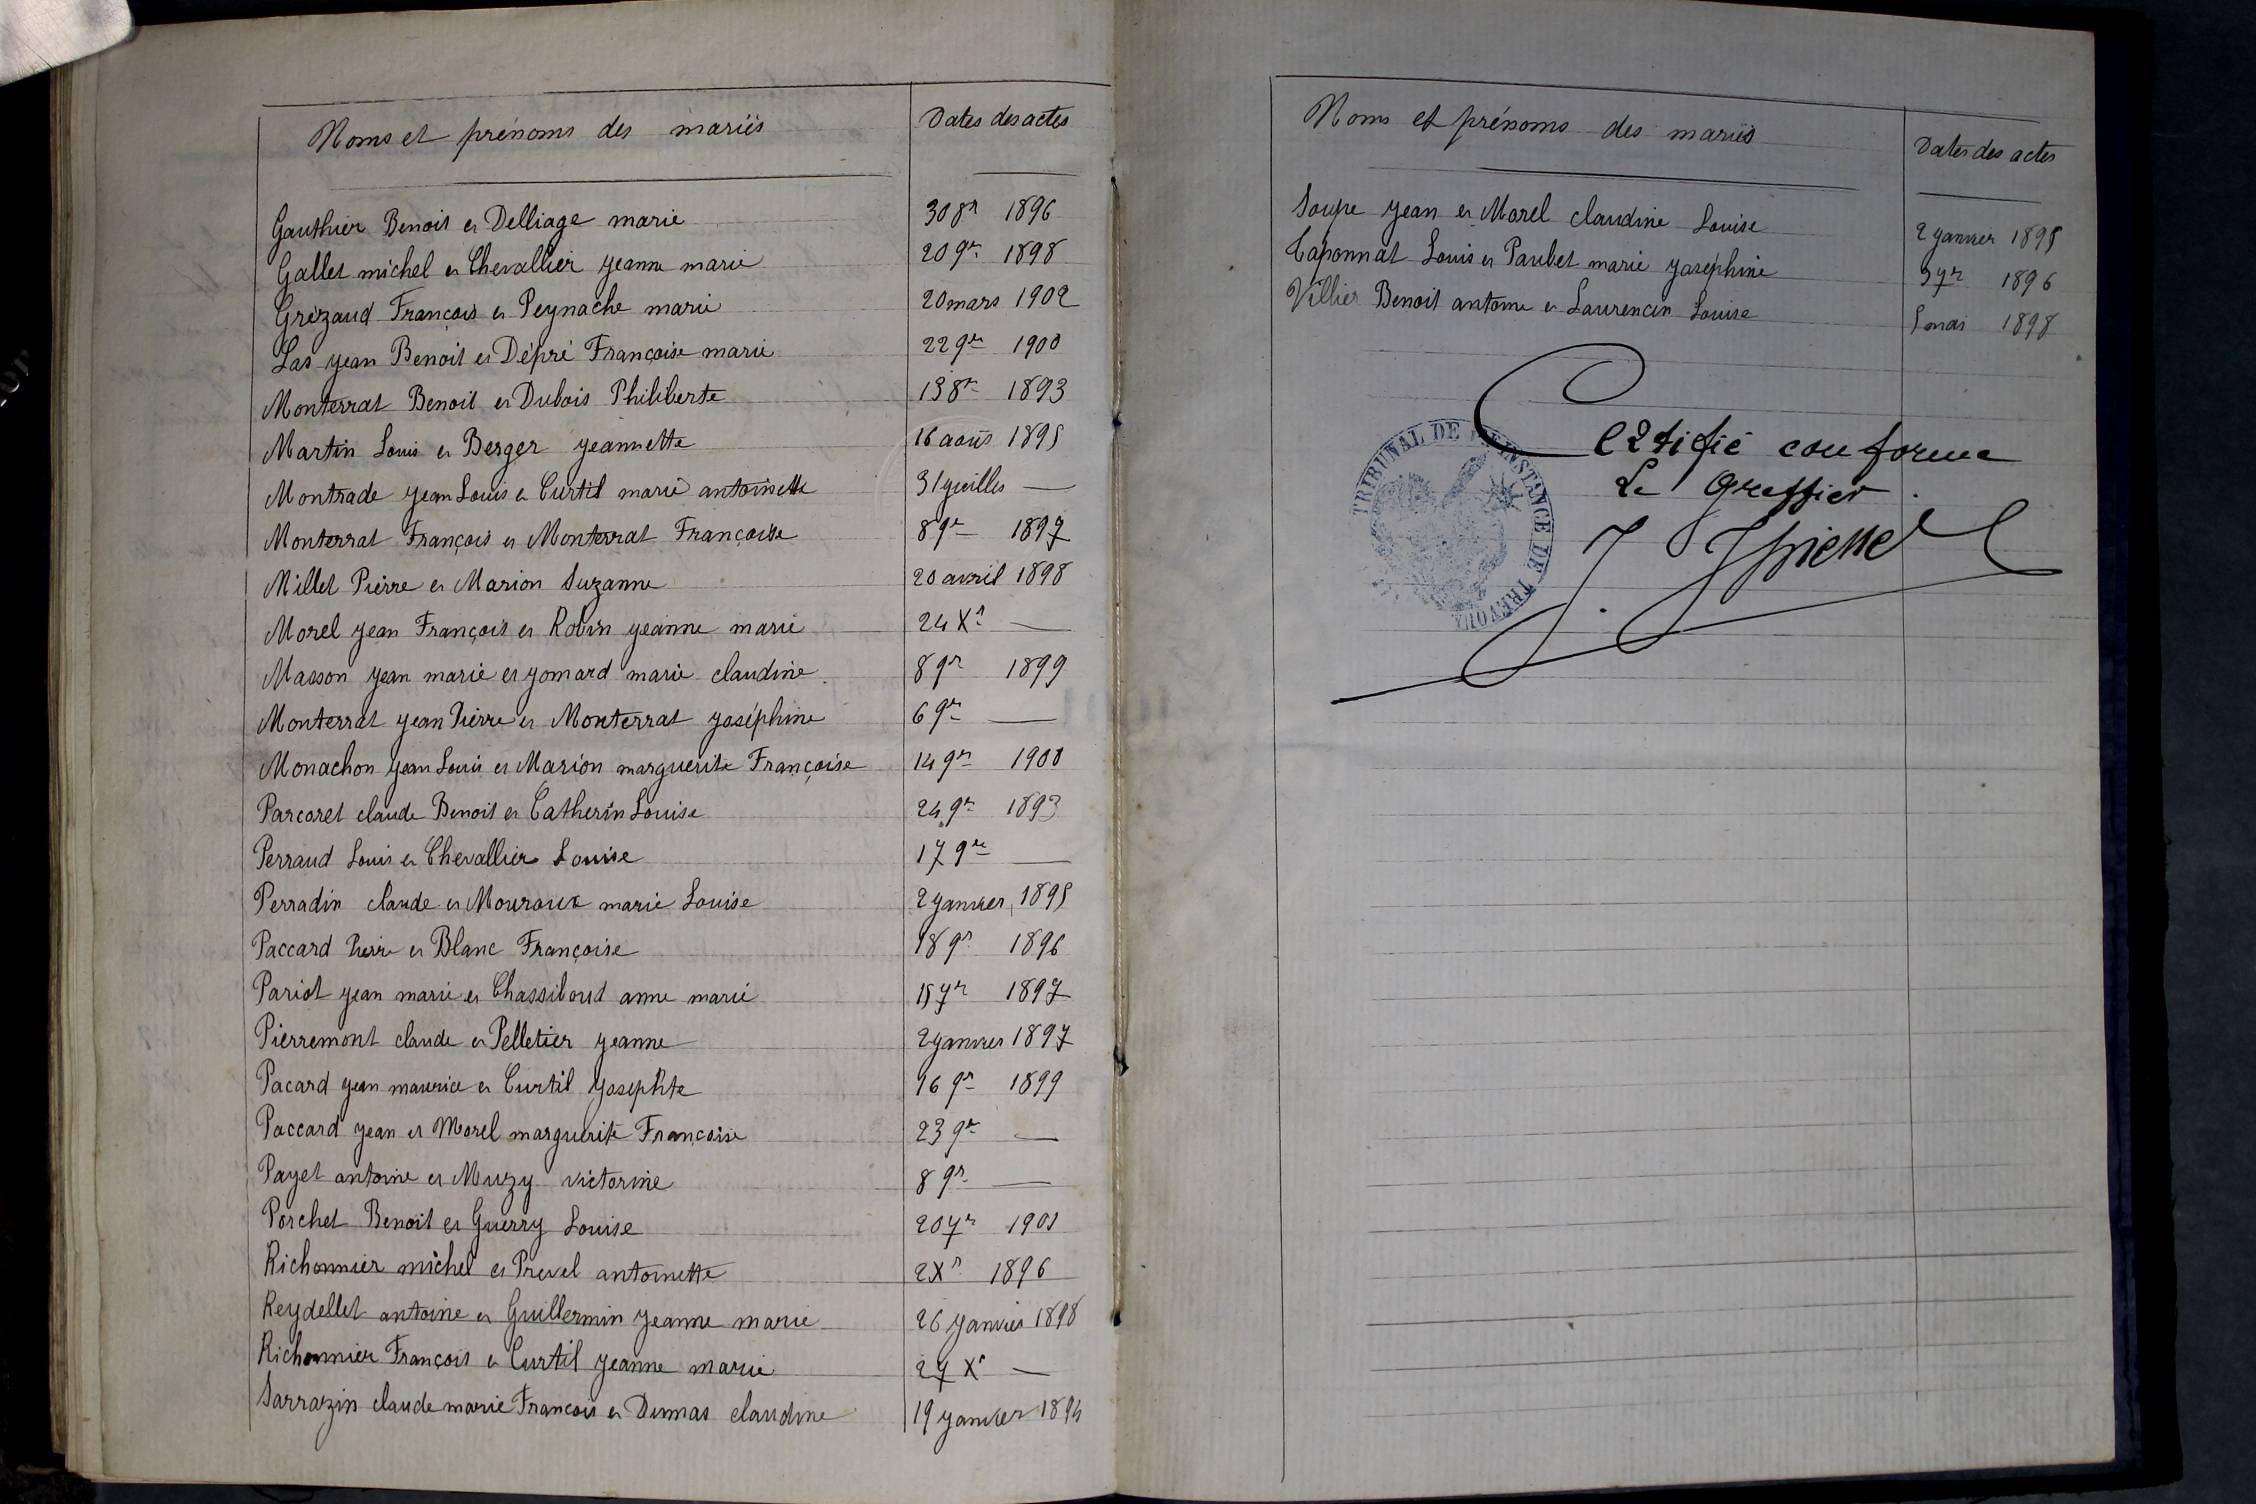 Noms et prénoms des mariés
Dates des actes
Gauthier Benoit et Delliage marie 30 8r 1896
Gallet michel et Chevallier jeanne marie 20 9r 1898
Grézaud François et Peynache marie 20 mars 1902
Las jean Benoit et Dépré Françoise marie 22 9re 1900
Monterrat Benoit et Dubois Philiberte 13 8r 1893
Martin Louis et Berger jeannette 16 août 1895
Montrade jean Louis et Curtil marie antoinette 31 juillet —
Monterrat François et Monterrat Françoise 8 9r 1897
Millet Pierre et Marion Suzanne 20 avril 1898
Morel jean François et Robin jeanne marie 24 Xr —
Masson jean marie et jomard marie claudine 8 9r 1899
Monterrat jean Pierre et Monterrat joséphine 6 9r —
Monachon jean Louis et Marion marguerite Françoise 14 9r 1900
Parcoret claude Benoit et Catherin Louise 24 9r 1893
Perraud Louis et Chevallier Louise 17 9re —
Perradin claude et Mouroux marie Louise 2 janvier 1895
Paccard Pierre et Blanc Françoise 18 9r 1896
Pariot jean marie et Chassiboud anne marie 15 7r 1897
Pierremont claude et Pelletier jeanne 2 janvier 1897
Pacard jean maurice et Curtil josephte 16 9r 1899
Paccard jean et Morel marguerite Françoise 23 9r —
Payet antoine et Muzy victorine 8 9r —
Porchet Benoit et Guerry Louise 20 7r 1901
Richonnier michel et Prevel antoinette 2 Xr 1896
Reydellet antoine et Guillermin jeanne marie 26 janvier 1898
Richonnier François et Curtil jeanne marie 27 Xr —
Sarrazin claude marie François et Dumas claudine 19 janvier 1894
Noms et prénoms des mariés
Dates des actes
Soupe jean et Morel claudine Louise 2 janvier 1895
Taponnat Louis et Paubet marie joséphine 3 7r 1896
Villier Benoit antoine et Laurencin Louise 5 mai 1898
Certifié conforme
Le Greffier
TRIBUNAL DE 1ERE INSTANCE DE TREVOUX